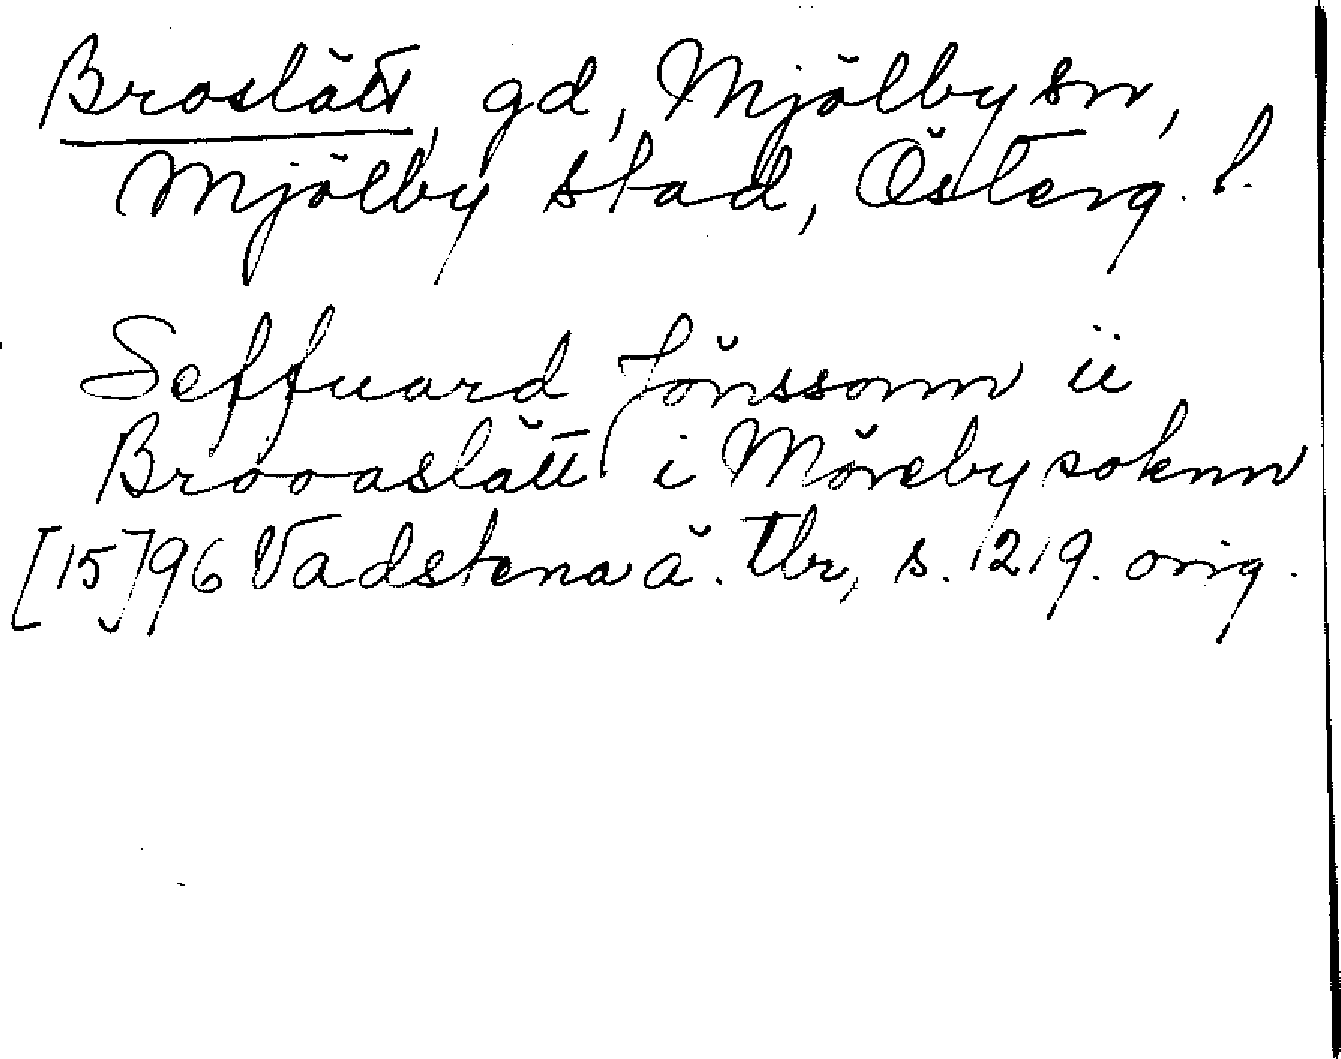 Broslätt, gd, Mjölby sn,
Mjölby stad, Österg. l.
Seffuard Jönssonn ii
Brooaslätt i Möreby soknn
[15]96 Vadstena ä. Tbr, s. 1219. orig.